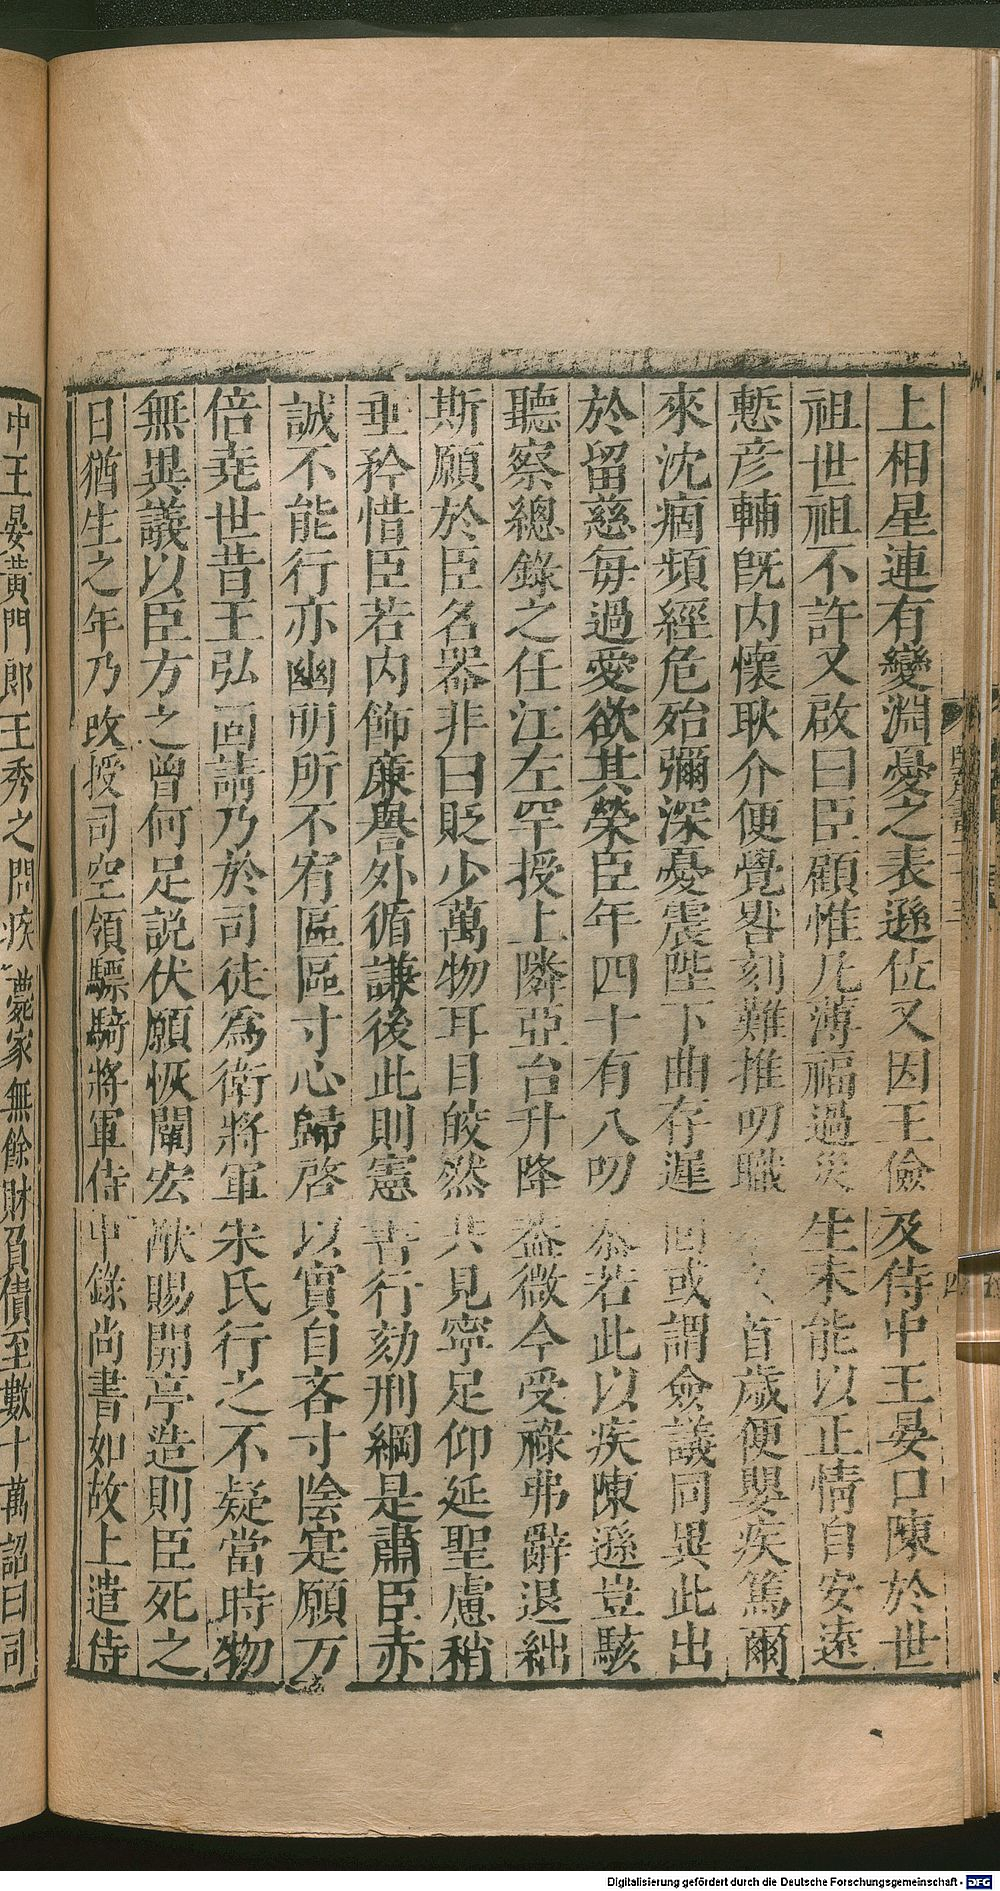 上相星連有變淵憂之表遜位又因王儉及侍中王晏口陳於世
祖世祖不許又啟曰臣顧惟凡薄福過災生未能以正情自安遠
慙彦輔旣内懷耿介便覺晷刻難推叨職首歲便嬰疾篤爾
來沈痼頻經危殆彌深憂震陛下曲存遲回或謂僉議同異此出
於留慈每過愛欲其榮臣年四十有八叨忝若此以疾陳遜豈駭
聽察總錄之任江左罕授上隣亞台升降蓋微今受祿弗辭退絀
斯願於臣名器非曰貶少萬物耳目皎然共見寧足仰延聖慮稍
垂矜惜臣若内飾廉譽外循謙後此則憲書行劾刑綱是肅臣赤
誠不能行亦幽明所不宥區區寸心歸啓以實自吝寸陰寔願万
倍尭世昔王弘固請乃於司徒爲衛將軍宋氏行之不疑當時物
無異議以臣方之曾何足説伏願恢闡宏猷賜開亭造則臣死之
日猶生之年乃改授司空領驃騎將軍侍中錄尚書如故上遣侍
中王晏黃門郎王秀之問疾薨家無餘財負債至數十萬詔曰司
四
Digitalisierung gefördert durch die Deutsche Forschungsgemeinschaft - DFG